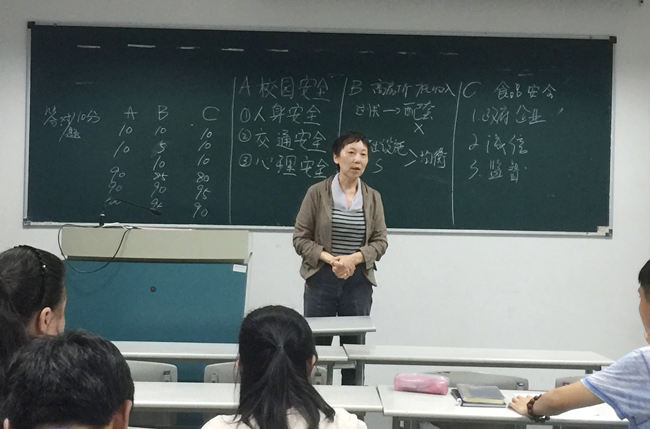 答对10分
/题
A B C
10 10 10
10 5 10
10 10
90 85 80
90 90 95
90
A 校园安全
①人身安全
②交通安全
③心理安全
B 高房价 低收入
→配套
X
设施
S
>均衡
C 食品安全
1.政府 企业
2.诚信
3.监督